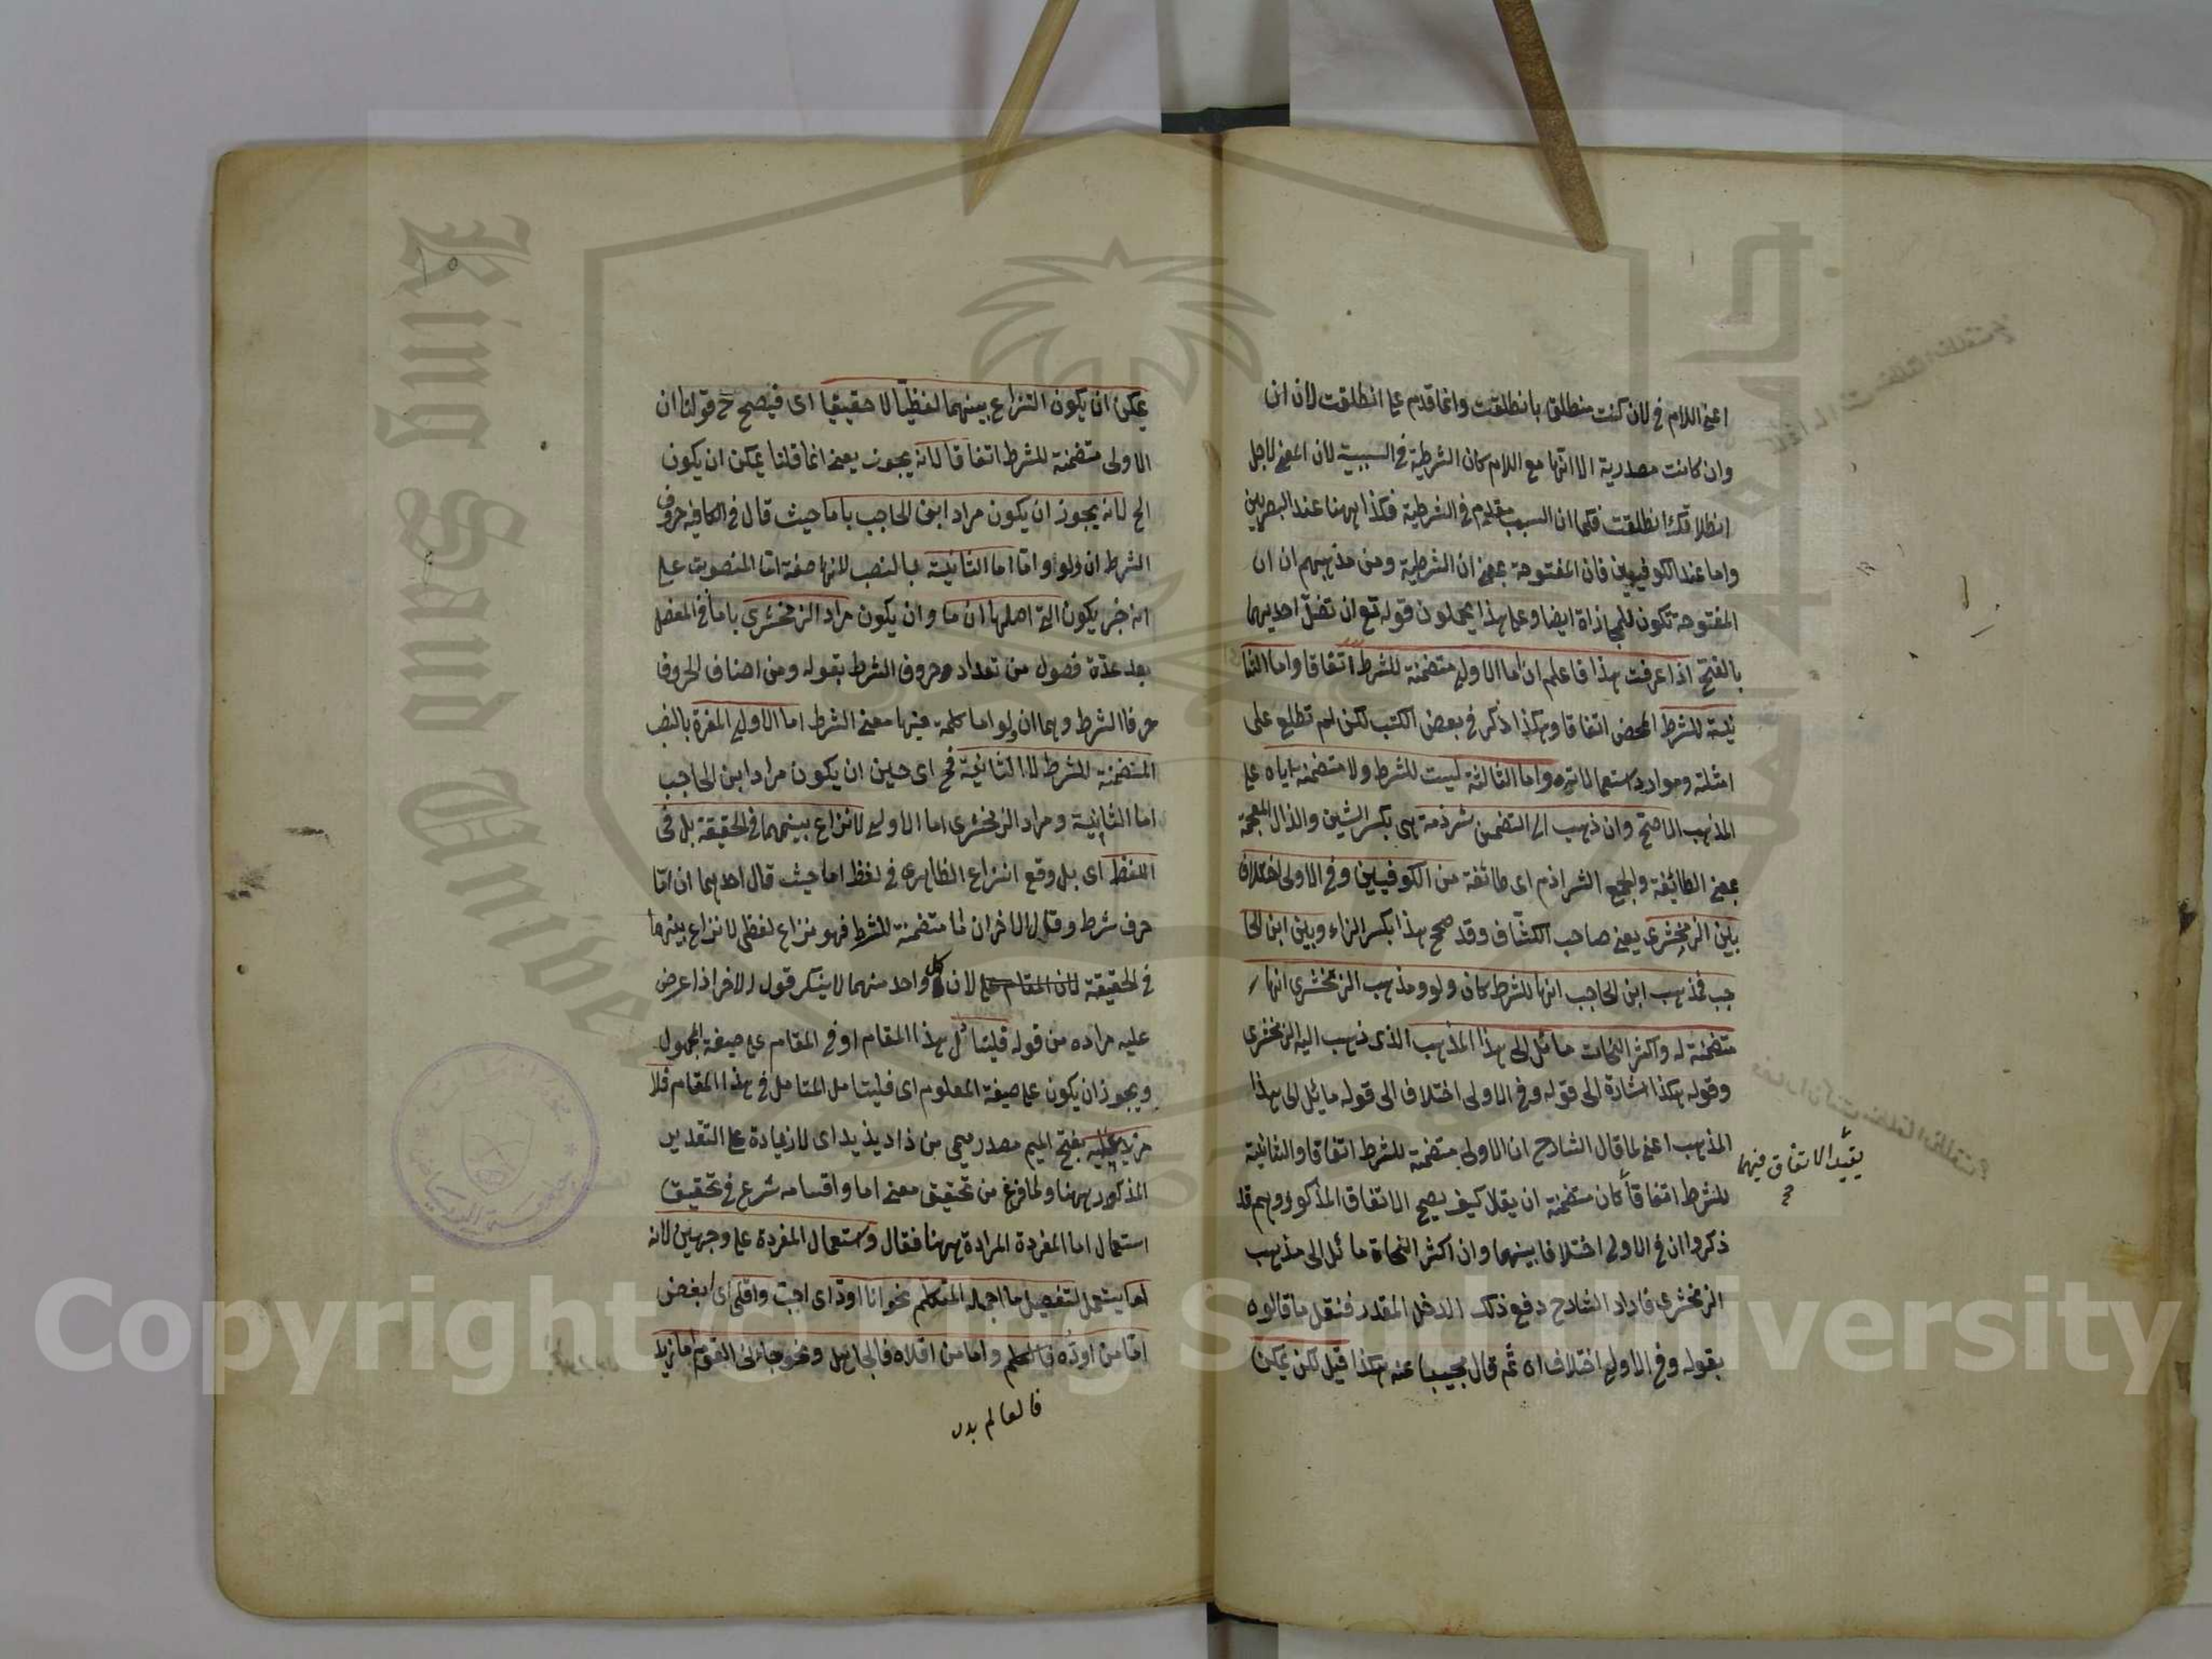 اعنى اللام فى لان كنت منطلقا بانطلقت وانما قدم على انطلقت لان ان
وان كانت مصدرية الا انها مع اللام كان الشرطية فى السببية لان المعنى لاجل
انطلاقك انطلقت فكما ان السبب مقدم فى الشرطية فكذا ههنا عند البصريين
واما عند الكوفيين فان المفتوحة بمعنى ان الشرطية ومن مذهبهم ان ان
المفتوحة تكون للمجازاة ايضا وعلى هذا يحملون قوله تع ان تضل احديهما
بالفتح اذا عرفت هذا فاعلم ان اما الاولى متضمنة للشرط اتفاقا واما الثا
نية للشرط المحض اتفاقا وهكذا ذكر فى بعض الكتب لكن لم تطلع على
امثلته وموارد استعمالاته واما الثالثة ليست للشرط ولا متضمنة اياه على
المذهب الاصح وان ذهب الى التضمن شرذمة هى بكسر الشين والذال المعجمة
بمعنى الطائفة والجمع الشراذم اى طائفة من الكوفيين وفى الاولى اختلاف
بين الزمخشرى يعنى صاحب الكشاف وقد صحح هذا بكسر الزاء وبين ابن الحا
جب فمذهب ابن الحاجب انها للشرط كان ولو ومذهب الزمخشرى انها
متضمنة له واكثر النحات مائل الى هذا المذهب الذى ذهب اليه الزمخشرى
وقوله هكذا اشارة الى قوله وفى الاولى اختلاف الى قوله مائل الى هذا
المذهب اعنى لما قال الشارح ان الاولى متضمنة للشرط اتفاقا والثانية
للشرط اتفاقا كان متضمنة ان يقال كيف يصح الاتفاق المذكور وهم قد
ذكروا ان فى الاولى اختلافا بينهما وان اكثر النحاة مائل الى مذهب
الزمخشرى فاراد الشارح دفع ذلك الدخل المقدر فنقل ما قالوه
بقوله وفى الاولى اختلاف اه ثم قال مجيبا عنه هكذا قيل لكن يمكن
يقيد الاتفاق فيهما
يمكن ان يكون النزاع بينهما لفظيا لا حقيقيا اى فيصح ح قولنا ان
الاولى متضمنة للشرط اتفاقا لانه يجوز يعنى انما قلنا يمكن ان يكون
الخ لانه يجوز ان يكون مراد ابن الحاجب باما حيث قال فى الكافيه حروف
الشرط ان ولو واما اما الثانية بالنصب لانها صفة اما المنصوبة على
انه خبر يكون التى اصلها ان ما وان يكون مراد الزمخشرى باما فى المفصل
بعد عدة فصول من تعداد حروف الشرط بقوله ومن اصناف الحروف
حرفا الشرط وهما ان ولو اما كلمة فيها معنى الشرط اما الاولى المفردة بالنصب
المتضمنة للشرط لا الثانية فح اى حين ان يكون مراد ابن الحاجب
اما الثانية ومراد الزمخشرى اما الاولى لا نزاع بينهما فى الحقيقة بل فى
اللفظ اى بل وقع النزاع الظاهرى فى لفظ اما حيث قال احدهما ان اما
حرف شرط وقال الاخر ان اما متضمنة للشرط فهو نزاع لفظى لا نزاع بينهما
فى الحقيقة لان المقام على لان كل واحد منهما لا ينكر قول الاخر اذا عرض
عليه مراده من قوله فليتأمل هذا المقام او فى المقام على صيغة المجهول
ويجوز ان يكون على صيغة المعلوم اى فليتامل المتامل فى هذا المقام فلا
مزيد عليه بفتح الميم مصدر ميمى من زاد يزيد اى لا زيادة على التقدير
المذكور ههنا ولما فرغ من تحقيق معنى اما واقسامه شرع فى تحقيق
استعمال اما المفردة المرادة ههنا فقال واستعمال المفردة على وجهين لانه
اما يستعمل لتفصيل ما اجمله المتكلم نحو انا اود اى احب واقلى اى ابغض
اما من اوده فالعلم واما من اقلاه فالجاهل ونحو جائنى القوم اما زيد
فالعالم بدر
King Saud University
Copyright © King Saud University